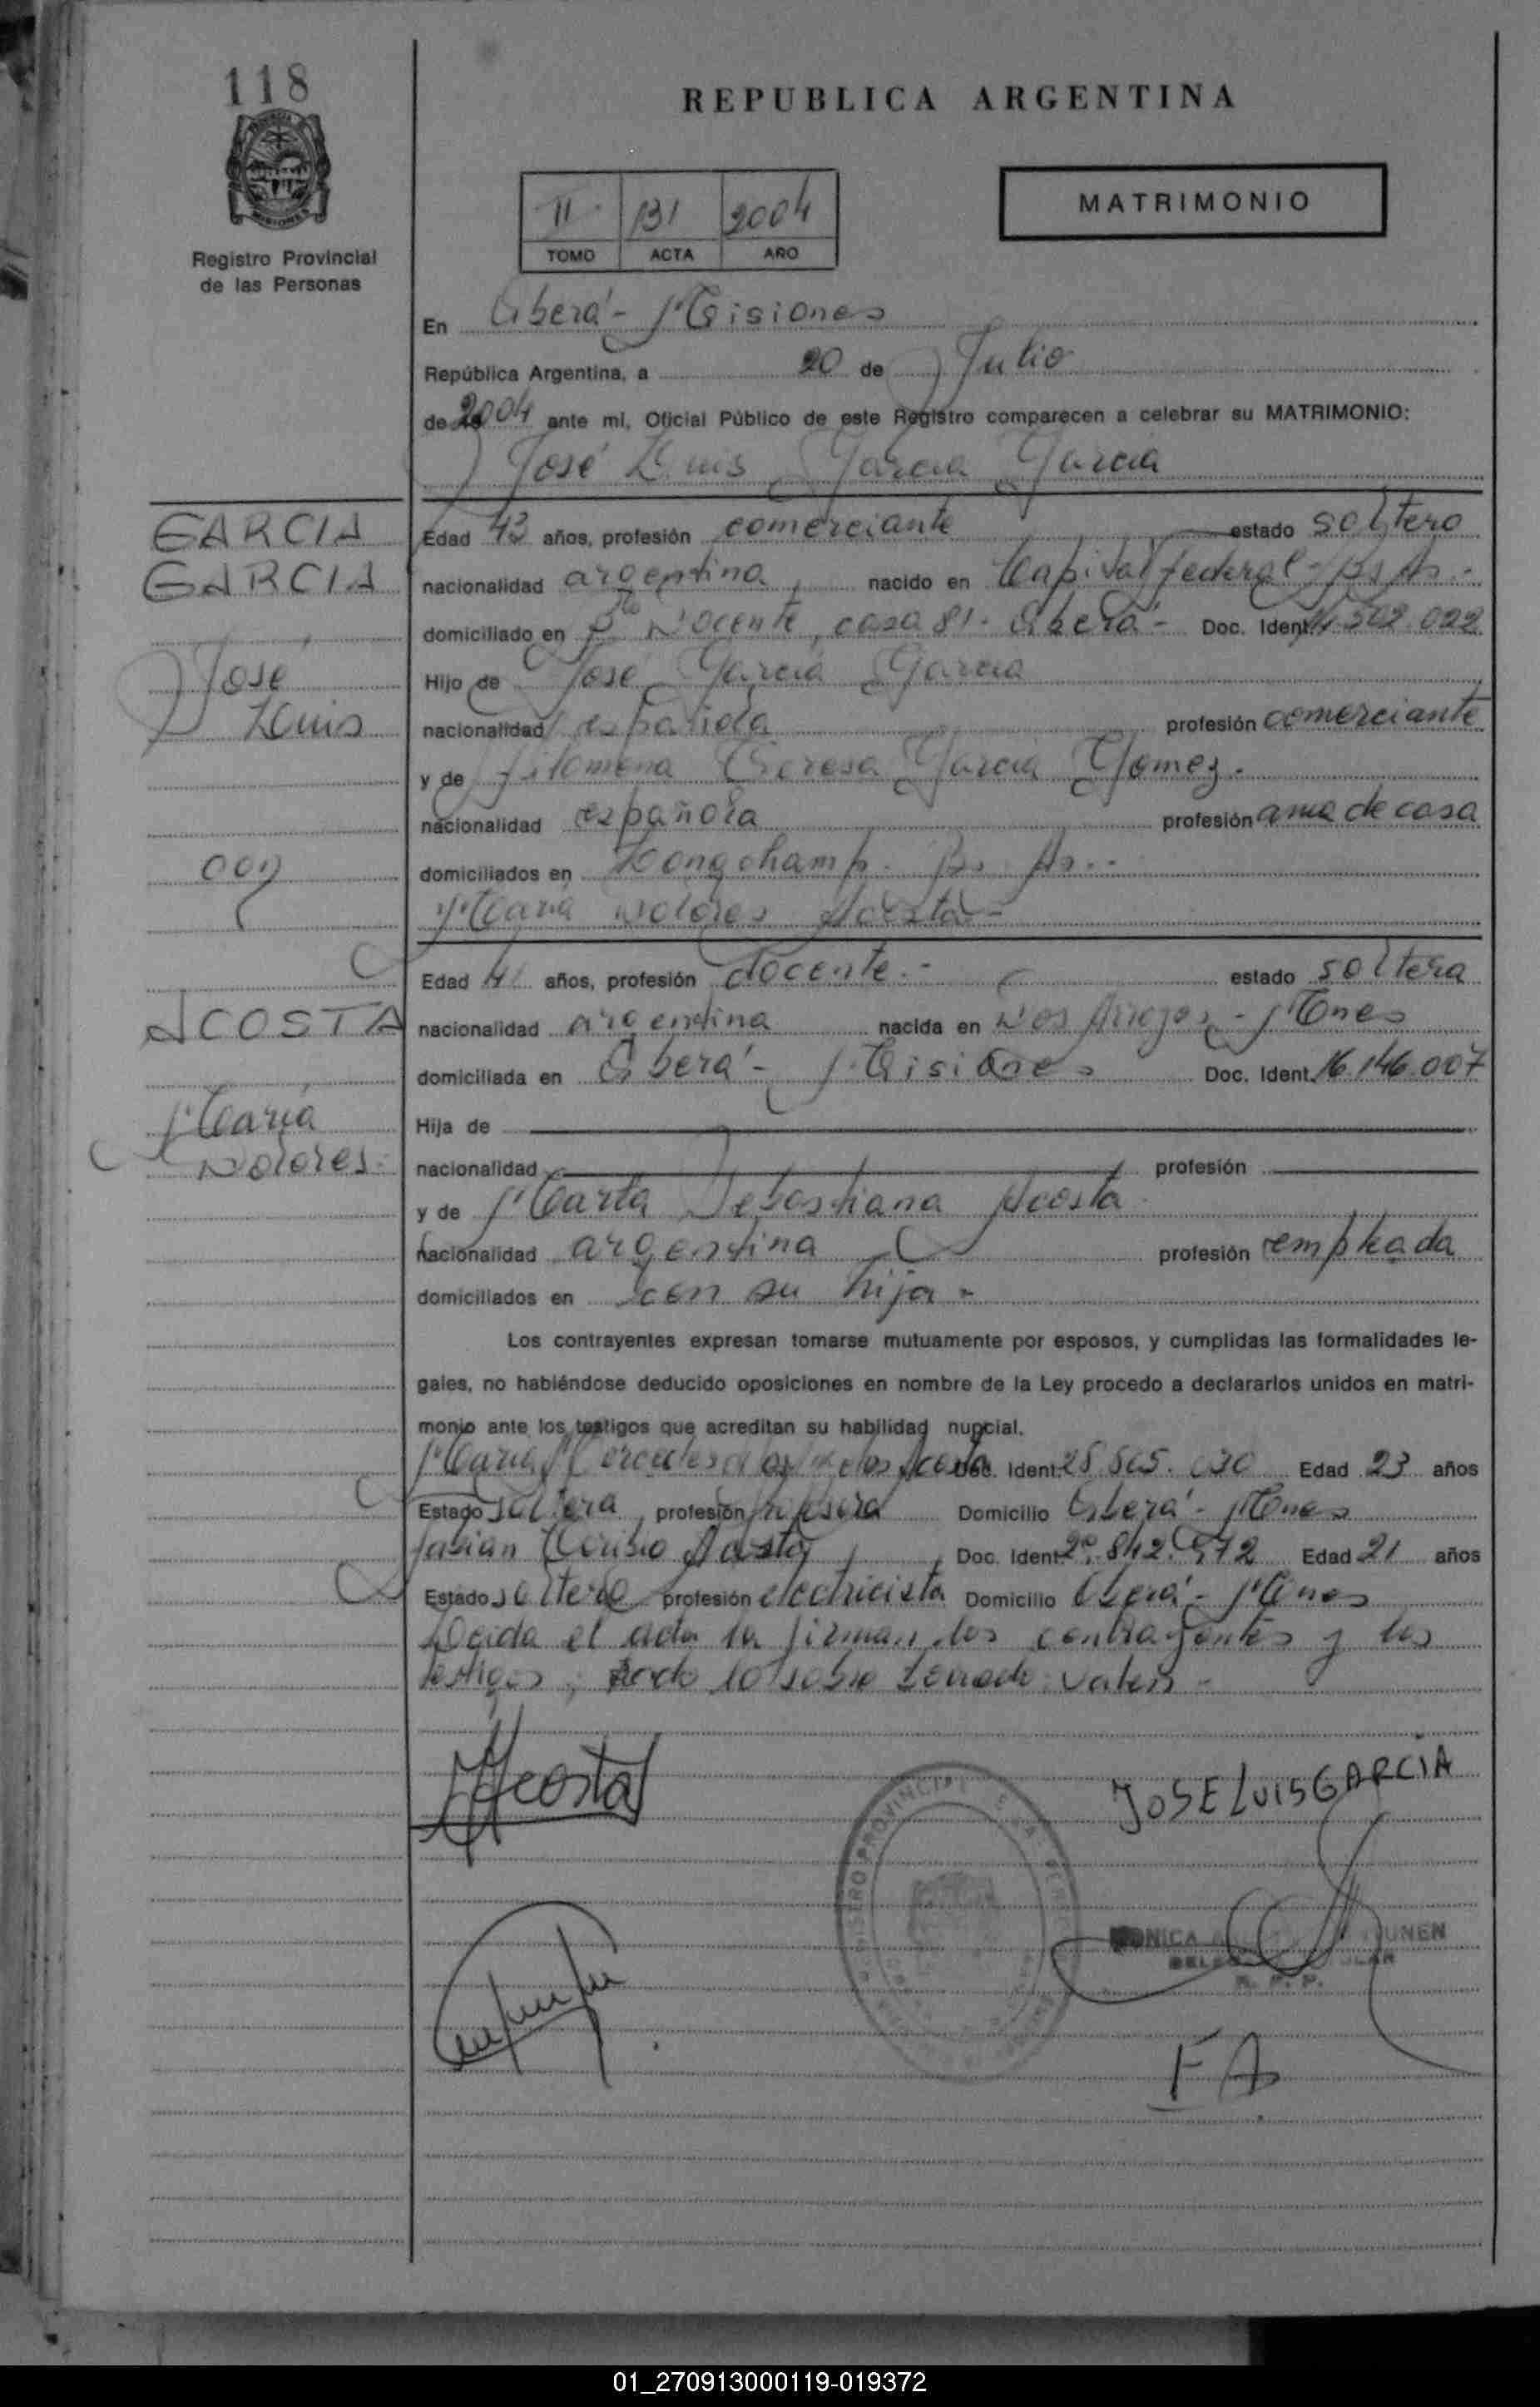 118
REPUBLICA ARGENTINA
MATRIMONIO
II 131 2004
TOMO ACTA AÑO
Registro Provincial
de las Personas
En Oberá - Misiones
República Argentina, a 20 de Julio
de 2004 ante mi, Oficial Público de este Registro comparecen a celebrar su MATRIMONIO:
José Luis Garcia Garcia
GARCIA
GARCIA
José
Luis
Edad 43 años, profesión comerciante estado soltero
nacionalidad argentina nacido en Capital federal - Bs As.-
domiciliado en Bº Docente, casa 81 - Oberá - Doc. Ident. 502.022
Hijo de José Garcia Garcia
nacionalidad española profesión comerciante
y de filomena Teresa Garcia Gomez.
nacionalidad española profesión ama de casa
domiciliados en Longchamp. Bs As.-
007
Maria Dolores Acosta -
ACOSTA
Maria
Dolores.
Edad 41 años, profesión docente.- estado soltera
nacionalidad argentina nacida en Dos Arroyos - Mones
domiciliada en Oberá - Misiones Doc. Ident. 16.146.007
Hija de
nacionalidad profesión
y de Marta Sebastiana Acosta
nacionalidad argentina profesión empleada
domiciliados en con su hija -
Los contrayentes expresan tomarse mutuamente por esposos, y cumplidas las formalidades le-
gales, no habiéndose deducido oposiciones en nombre de la Ley procedo a declararlos unidos en matri-
monio ante los testigos que acreditan su habilidad nupcial.
Maria Mercedes Acosta Doc. Ident. 28.865.030 Edad 23 años
Estado soltera, profesión profesora Domicilio Oberá - Mones
Fabian Toribio Acosta, Doc. Ident. 842. Edad 21 años
Estado soltero profesión electricista Domicilio Oberá - Mones
Leida el acta la firman los contrayentes y los
testigos; todo lo sobre borrado: valen -
Acosta
JOSE LUIS GARCIA
REGISTRO PROVINCIAL DE LAS PERSONAS
MONICA
R. P. P.
FA
01_270913000119-019372